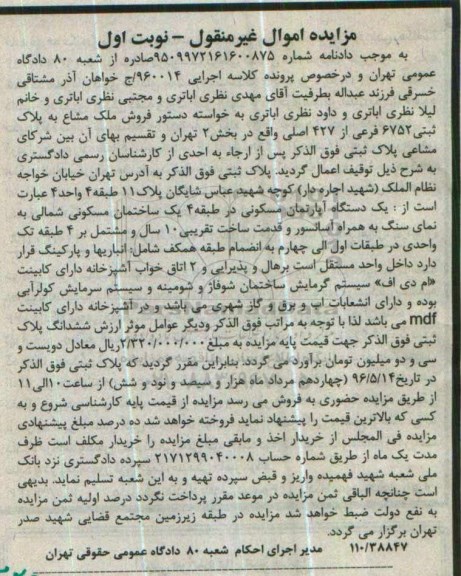 مزایده اموال غیرمنقول - نوبت اول
به موجب دادنامه شماره ۹۵۰۹۹۷۲۱۶۱۶۰۰۸۷۵صادره از شعبه ۸۰ دادگاه
عمومی تهران و درخصوص پرونده کلاسه اجرایی ۹۶۰۰۱۴/ج خواهان آذر مشتاقی
خسرقی فرزند عبداله بطرفیت آقای مهدی نظری اباتری و مجتبی نظری اباتری و خانم
لیلا نظری اباتری و داود نظری اباتری به خواسته دستور فروش ملک مشاع به پلاک
ثبتی۶۷۵۲ فرعی از ۴۲۷ اصلی واقع در بخش۲ تهران و تقسیم بهای آن بین شرکای
مشاعی پلاک ثبتی فوق الذکر پس از ارجاء به احدی از کارشناسان رسمی دادگستری
به شرح ذیل توقیف اعمال گردید. پلاک ثبتی فوق الذکر به آدرس تهران خیابان خواجه
نظام الملک (شهید اجاره دار) کوچه شهید عباس شایگان پلاک۱۱ طبقه۴ واحد۴ عبارت
است از : یک دستگاه آپارتمان مسکونی در طبقه۴ یک ساختمان مسکونی شمالی به
نمای سنگ به همراه آسانسور و قدمت ساخت تقریبی۱۰ سال و مشتمل بر ۴ طبقه تک
واحدی در طبقات اول الی چهارم به انضمام طبقه همکف شامل: انباریها و پارکینگ قرار
دارد داخل واحد مستقل است برهال و پذیرایی و ۲ اتاق خواب آشپزخانه دارای کابینت
«ام دی اف» سیستم گرمایش ساختمان شوفاژ و شومینه و سیستم سرمایش کولرآبی
بوده و دارای انشعابات اب و برق و گاز شهری می باشد و در آشپزخانه دارای کابینت
mdf می باشد لذا با توجه به مراتب فوق الذکر ودیگر عوامل موثر ارزش ششدانگ پلاک
ثبتی فوق الذکر جهت قیمت پایه مزایده به مبلغ۲/۳۲۰/۰۰۰/۰۰۰ریال معادل دویست و
سی و دو میلیون تومان برآورد می گردد. بنابراین مقرر گردید که پلاک ثبتی فوق الذکر
در تاریخ۹۶/۵/۱۴ (چهاردهم مرداد ماه هزار و سیصد و نود و شش) از ساعت۱۰الی۱۱
از طریق مزایده حضوری به فروش می رسد مزایده از قیمت پایه کارشناسی شروع و به
کسی که بالاترین قیمت را پیشنهاد نماید فروخته خواهد شد ده درصد مبلغ پیشنهادی
مزایده فی المجلس از خریدار اخذ و مابقی مبلغ مزایده را خریدار مکلف است ظرف
مدت یک ماه از طریق شماره حساب ۲۱۷۱۲۹۹۰۴۰۰۰۸ سپرده دادگستری نزد بانک
ملی شعبه شهید فهمیده واریز و قبض سپرده تهیه و به این شعبه تسلیم نماید. بدیهی
است چنانچه الباقی ثمن مزایده در موعد مقرر پرداخت نگردد درصد اولیه ثمن مزایده
به نفع دولت ضبط خواهد شد مزایده در طبقه زیرزمین مجتمع قضایی شهید صدر
تهران برگزار می گردد.
۱۱۰/۳۸۸۴۷ مدیر اجرای احکام شعبه ۸۰ دادگاه عمومی حقوقی تهران